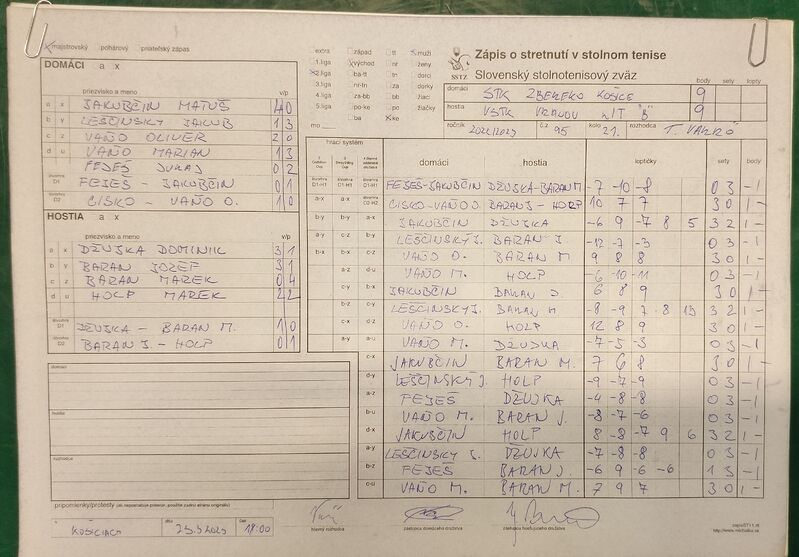 majstrovský pohárový priateľský zápas
DOMÁCI a x
priezvisko a meno v/p
a x JAKUBČIN MATÚŠ 4 0
b y LEŠČINSKÝ JAKUB 1 3
c z VAŇO OLIVER 2 0
d u VAŇO MARIAN 1 3
FEJEŠ JURAJ 0 2
štvorhra D1 FEJEŠ - JAKUBČIN 0 1
štvorhra D2 CISKO - VAŇO O. 1 0
HOSTIA a x
priezvisko a meno v/p
a x DŽUJKA DOMINIK 3 1
b y BARAN JOZEF 3 1
c z BARAN MAREK 0 4
d u HOLP MAREK 2 2
štvorhra D1 DŽUJKA - BARAN M. 1 0
štvorhra D2 BARAN J. - HOLP 0 1
domáci
hostia
rozhodca
pripomienky/protesty
KOŠICIACH dňa 25.3.2023 čas 18:00
extra západ tt muži
1.liga východ nr ženy
2.liga ba-tt tn dorci
3.liga nr-tn za dorky
4.liga za-bb bb žiaci
5.liga po-ke po žiačky
mo ba ke
SSTZ
Zápis o stretnutí v stolnom tenise
Slovenský stolnotenisový zväz
body sety lopty
domáci STK ZBEREKO KOŠICE 9
hostia VSTK VRANOV n/T "B" 9
ročník 2022/2023 č.z. 95 kolo 21. rozhodca
hrací systém
domáci hostia loptičky sety body
štvorhra D1-H1 štvorhra D1-H1 štvorhra D1-H1 FEJEŠ-JAKUBČIN DŽUJKA-BARAN M -7 -10 -8 0 3 -1
a-x a-x štvorhra D2-H2 CISKO-VAŇO O. BARAN J - HOLP 10 7 7 3 0 1 -
b-y b-y a-x JAKUBČIN DŽUJKA -6 9 -7 8 5 3 2 1 -
a-y c-z b-y LEŠČINSKÝ J. BARAN J -12 -7 -3 0 3 -1
b-x b-x c-z VAŇO O. BARAN M 9 8 8 3 0 1 -
a-z d-u VAŇO M. HOLP -6 -10 -11 0 3 -1
c-y b-x JAKUBČIN BARAN J. 6 8 9 3 0 1 -
b-z c-y LEŠČINSKÝ J. BARAN M -8 -9 7 8 13 3 2 1 -
c-x d-z VAŇO O. HOLP 12 8 9 3 0 1 -
a-y a-u VAŇO M. DŽUJKA -7 -5 -3 0 3 -1
c-x JAKUBČIN BARAN M. 7 6 8 3 0 1 -
d-y LEŠČINSKÝ J. HOLP -9 -7 -9 0 3 -1
a-z FEJEŠ DŽUJKA -4 -8 -8 0 3 -1
b-u VAŇO M. BARAN J. -8 -7 -6 0 3 -1
d-x JAKUBČIN HOLP 8 -8 -7 9 6 3 2 1 -
a-y LEŠČINSKY J. DŽUJKA -7 -8 -8 0 3 -1
b-z FEJEŠ BARAN J. -6 9 -6 -6 1 3 -1
c-u VAŇO M. BARAN M. 7 9 7 3 0 1 -
hlavný rozhodca zástupca domáceho družstva zástupca hosťujúceho družstva